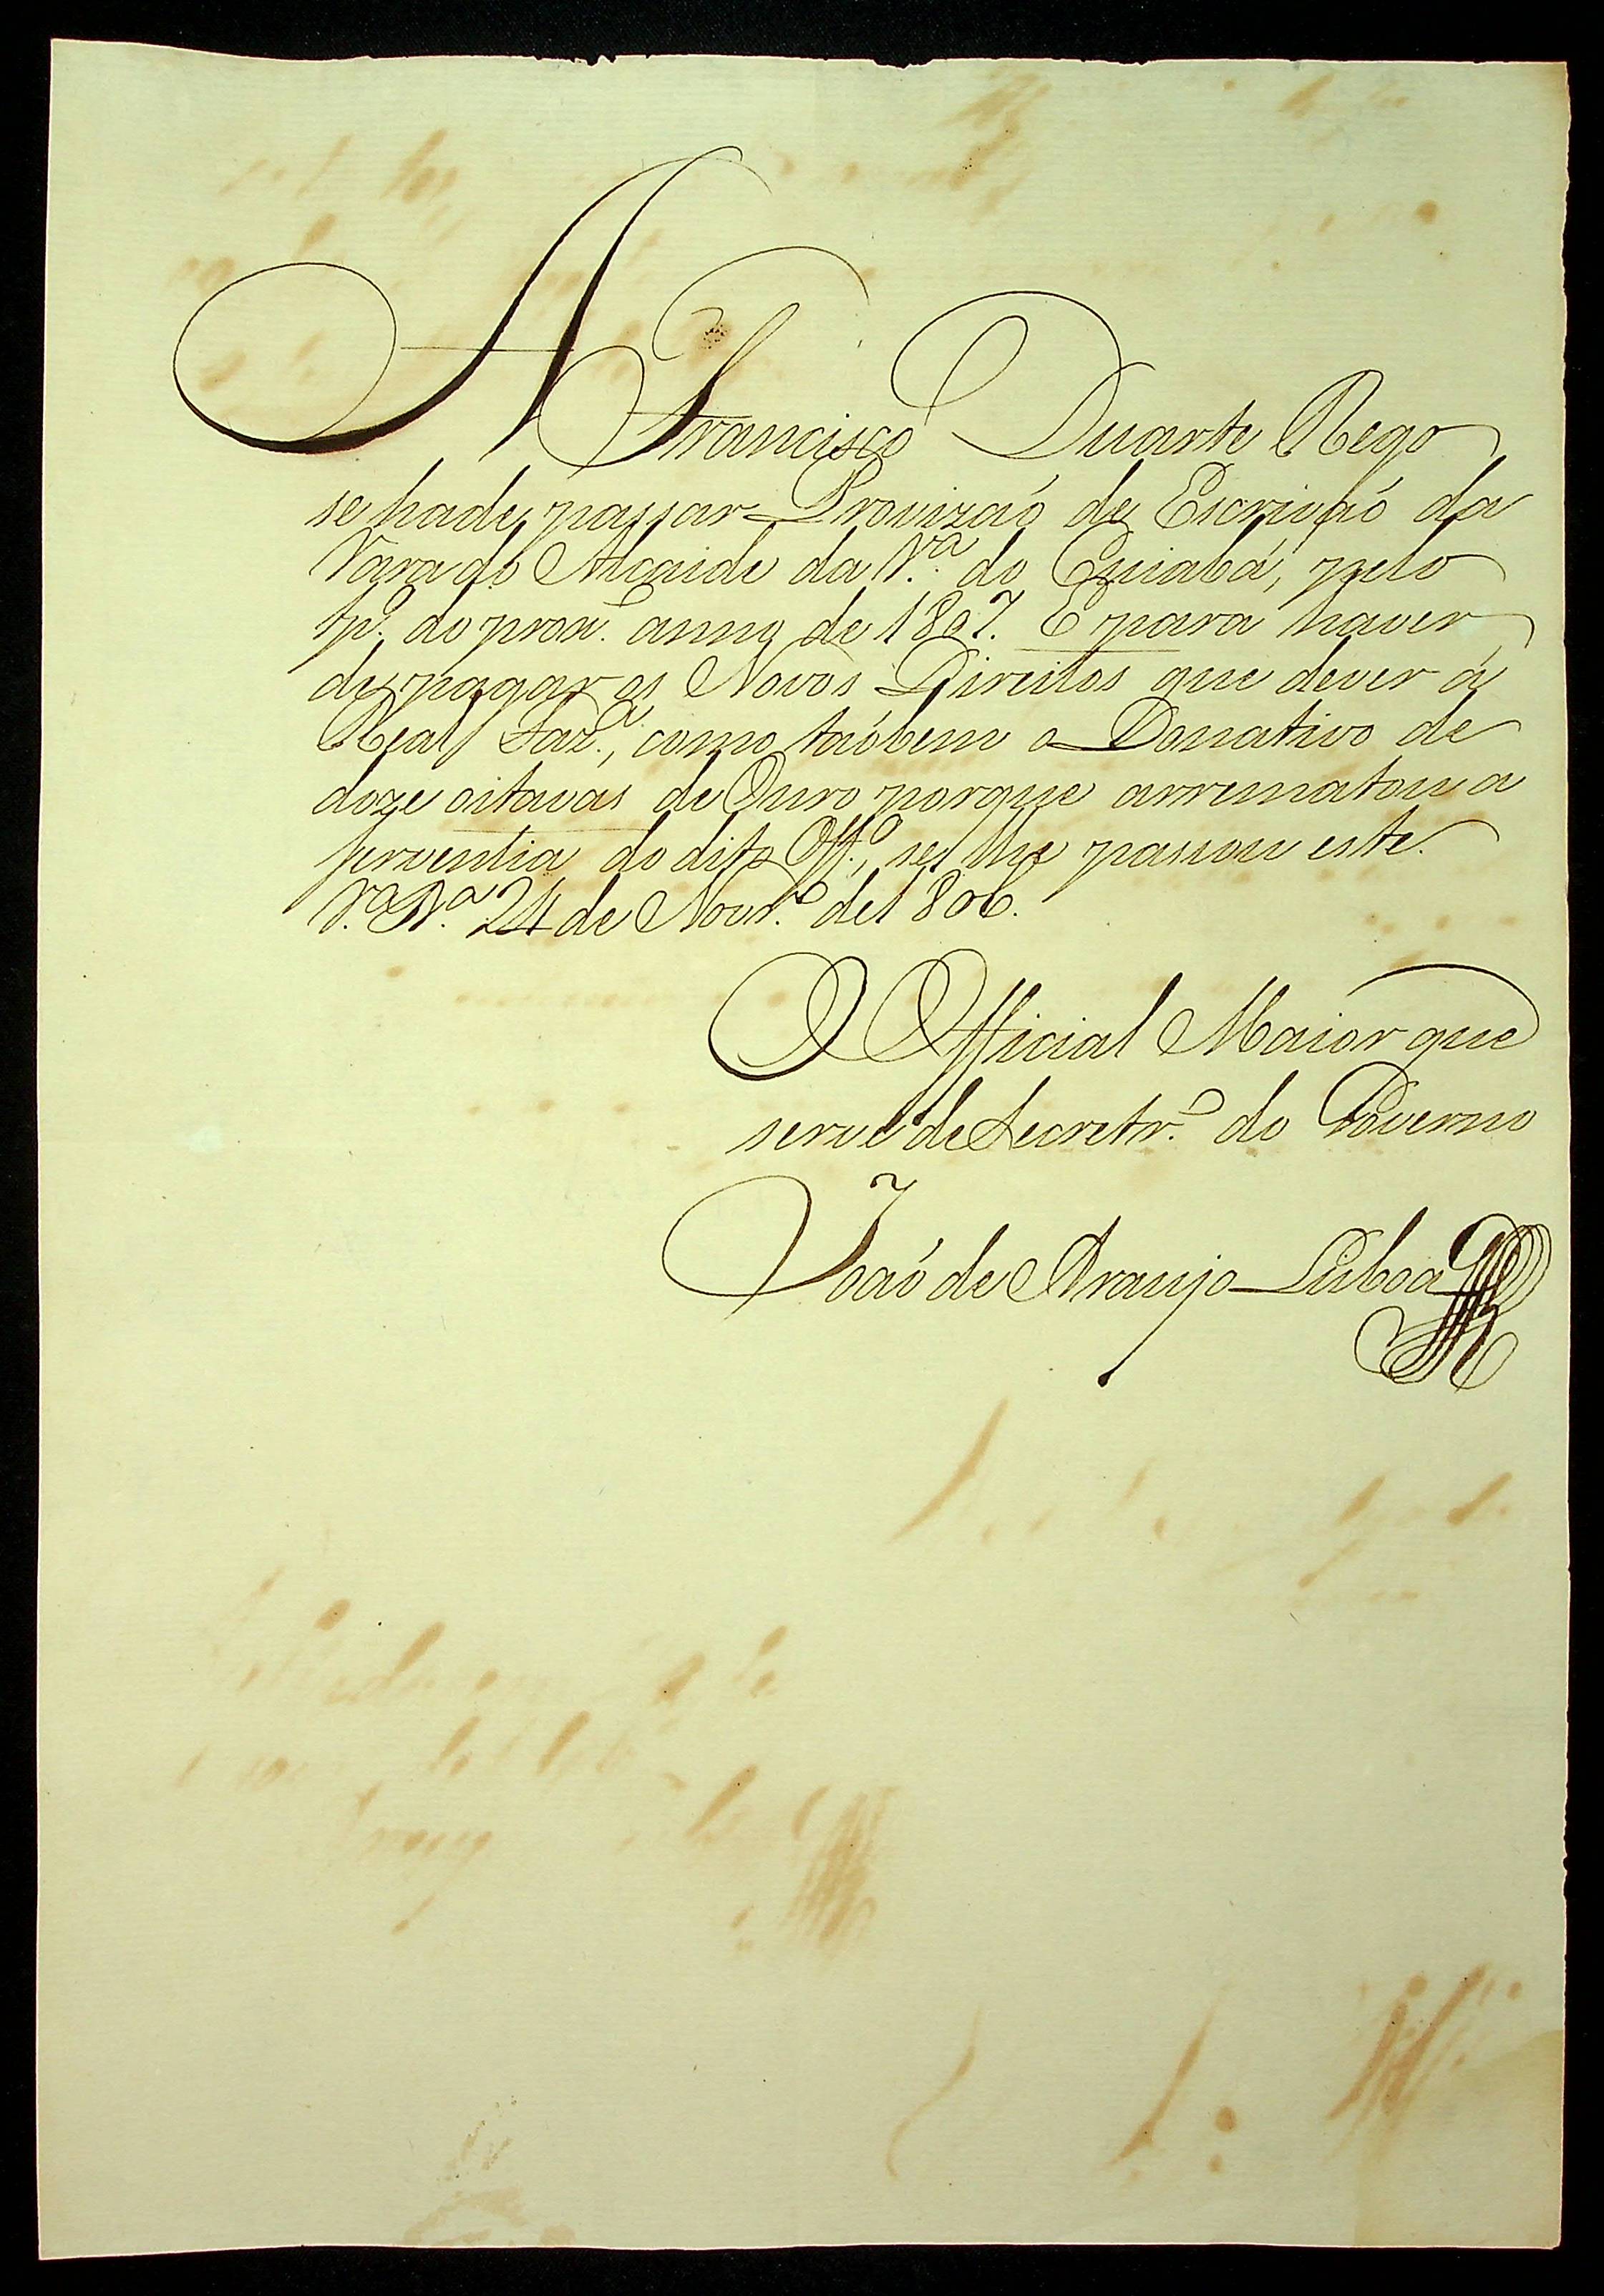 A Francisco Duarte Rego
se hade passar Provizaó de Escrivaó da
Vara do Alcaide da V.ª do Cuiabá, pelo
tp.º do prox.º anno de 1807. E para haver
de pagar os Novos Direitos que dever á
Real Faz.ª, como taóbem o Donativo de
doze oitavas de Ouro porque arrematou a
serventia do dito Off.º, se lhe passou este.
V.ª B.ª 24 de Novr.º de 1806.
O Official Maior que
serve de Secretr.º do Governo
Joaó de Araujo Lisboa